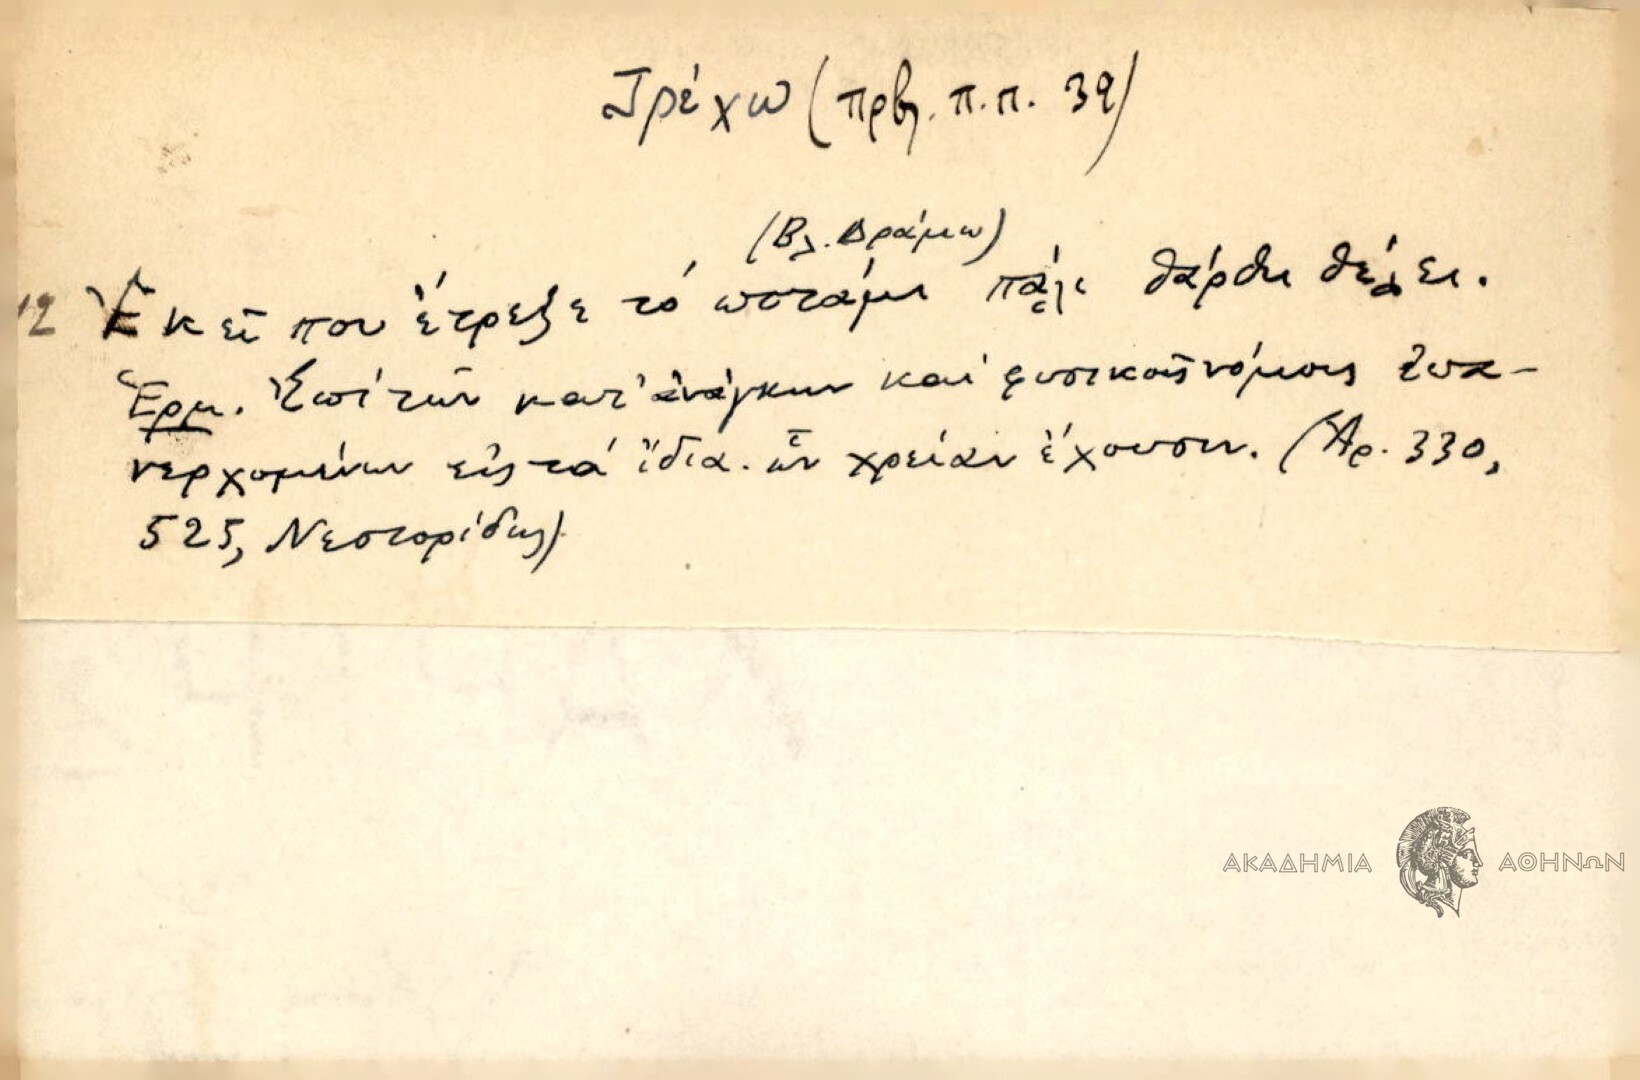 Τρέχω (πρβλ. π.π. 39)
(Βλ. Δράμω)
12 Ἐκεῖ που ἔτρεξε τό ποτάμι πάλι θάρθη θέλει.
Ἑρμ. Ἐπί τῶν κατ' ἀνάγκην και φυσικοῖς νόμοις ἐπα-
νερχομένων εἰς τά ἴδια. ὧν χρείαν ἔχουσιν. (Ἀρ. 330,
525, Νεστορίδης)
ΑΚΑΔΗΜΙΑ ΑΘΗΝΩΝ